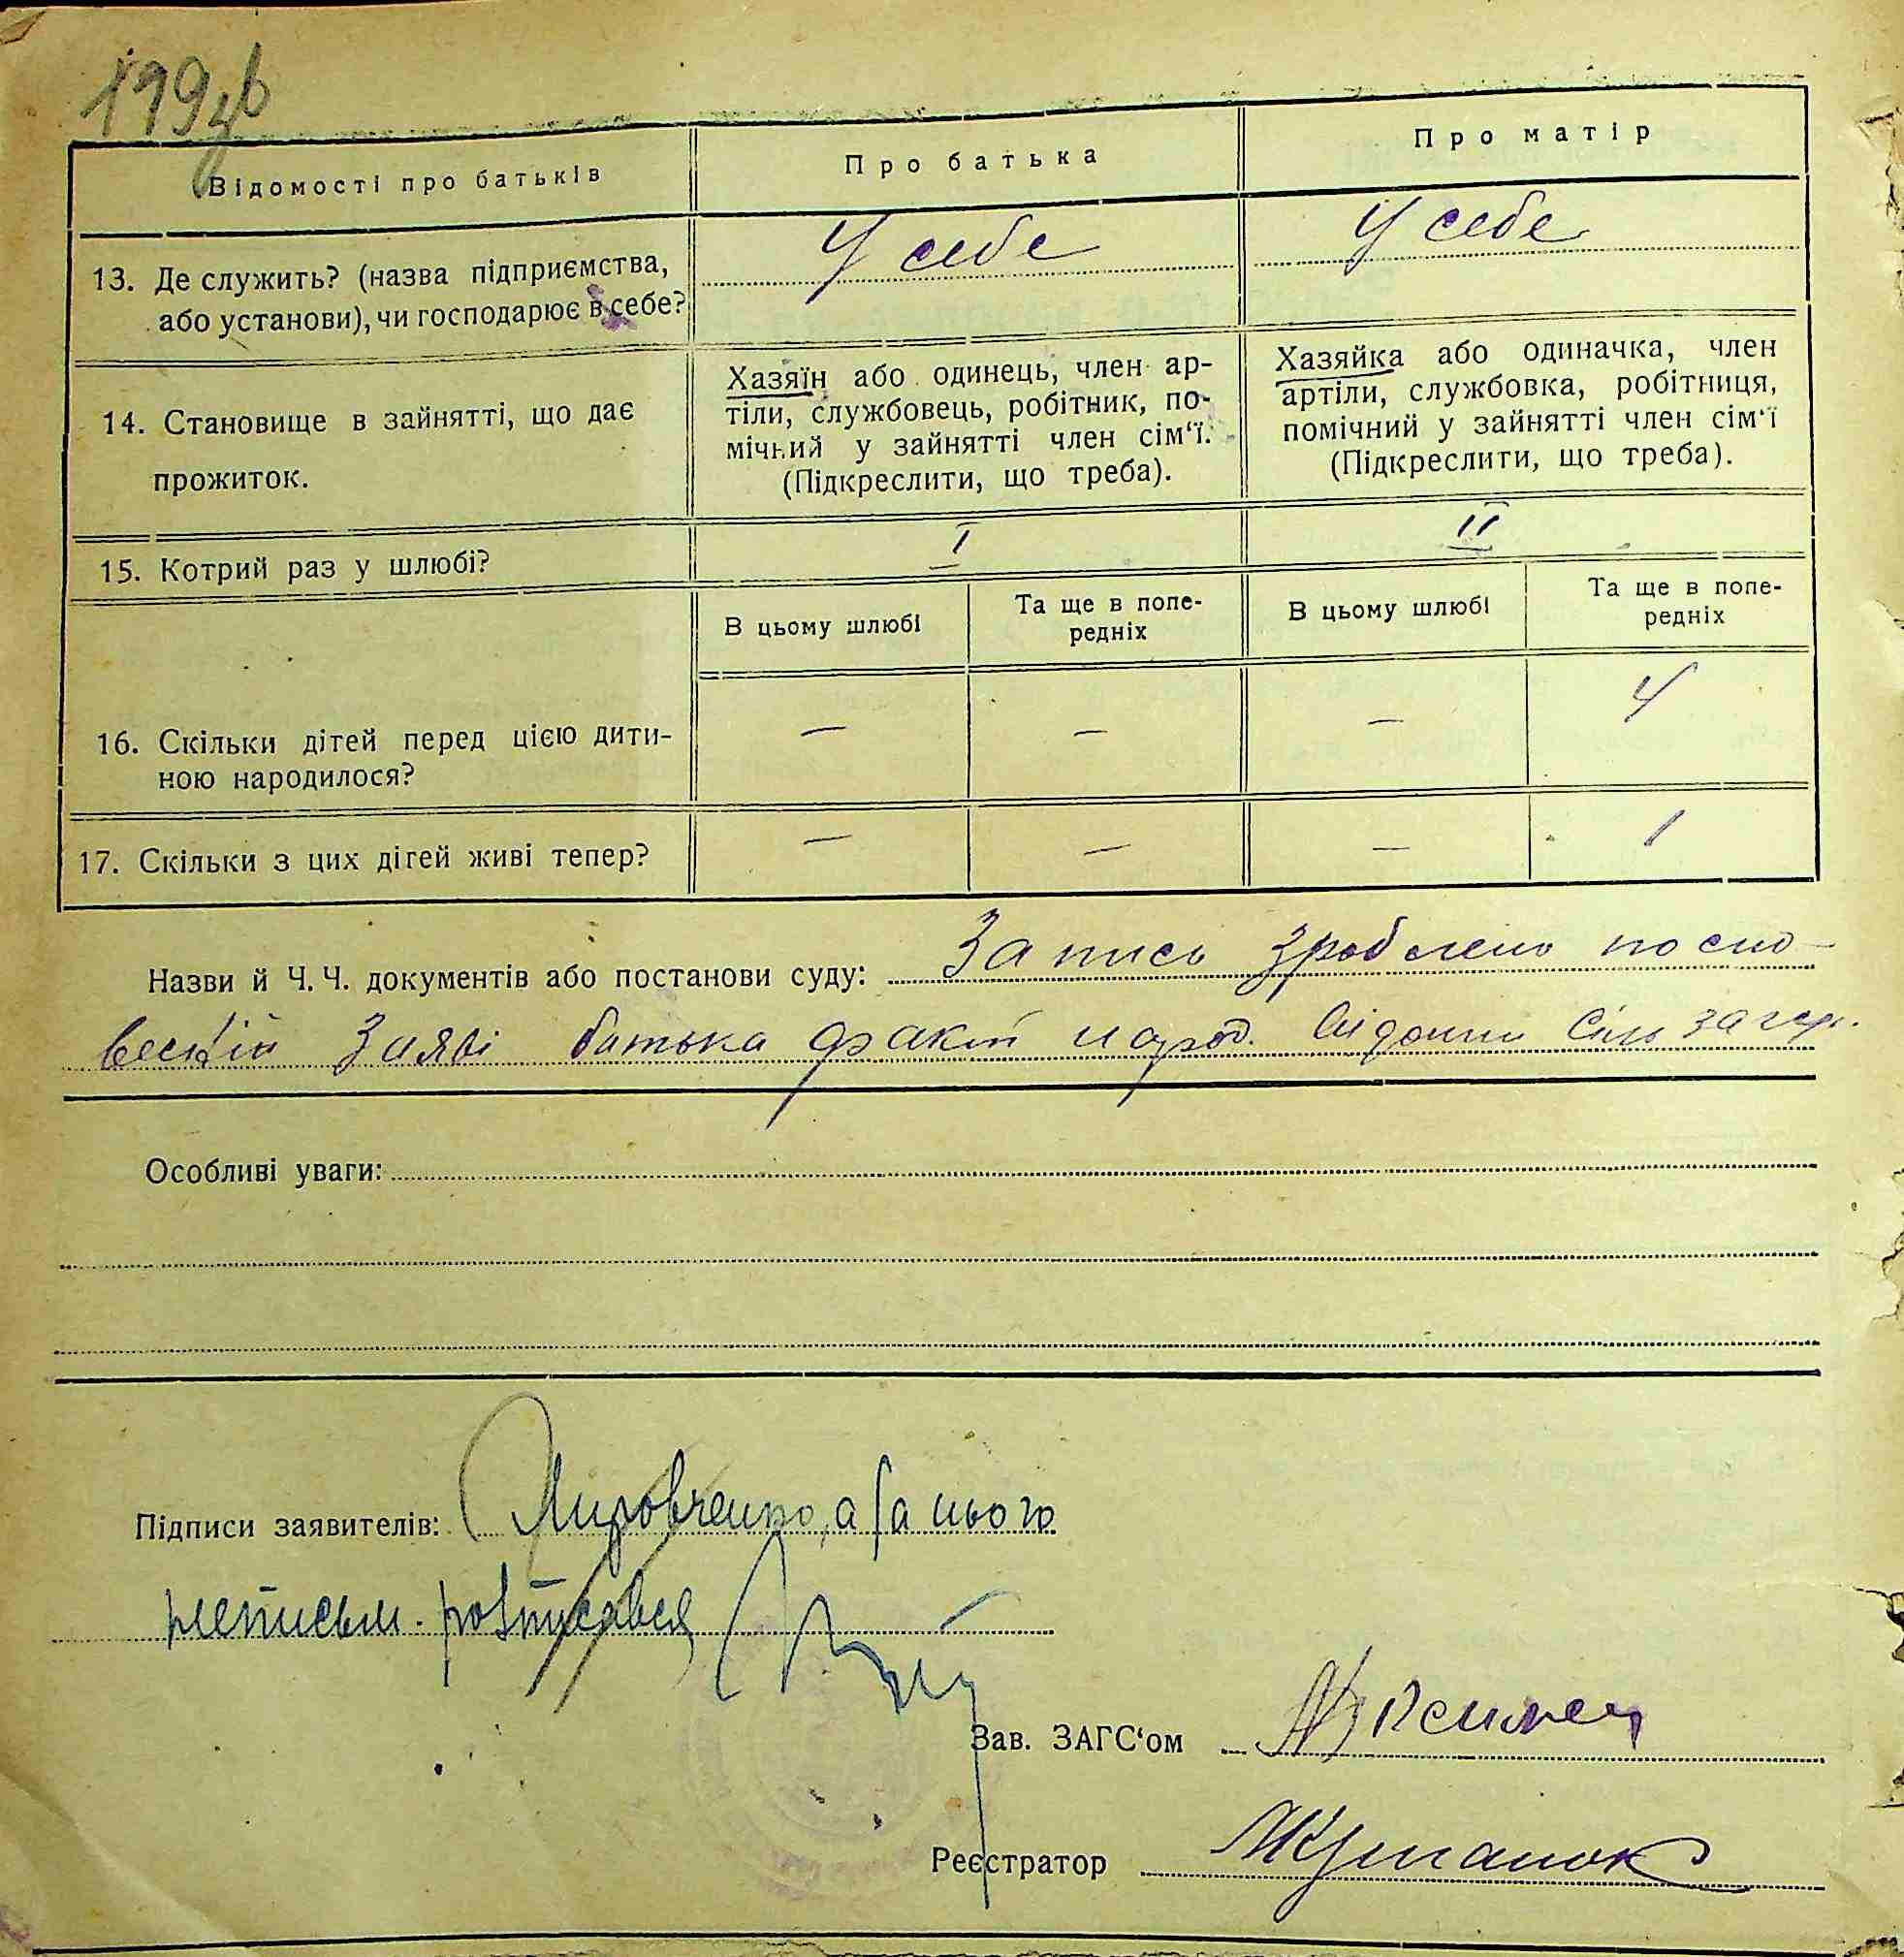 199
Відомості про батьків
Про батька
Про матір
13. Де служить? (назва підприємства,
або установи), чи господарює в себе?
У себе
У себе
14. Становище в зайнятті, що дає
прожиток.
Хазяїн або одинець, член ар-
тіли, службовець, робітник, по-
мічний у зайнятті член сім‘ї.
(Підкреслити, що треба).
Хазяйка або одиначка, член
артіли, службовка, робітниця,
помічний у зайнятті член сім‘ї
(Підкреслити, що треба).
15. Котрий раз у шлюбі?
I
II
В цьому шлюбі
Та ще в попе-
редніх
В цьому шлюбі
Та ще в попе-
редніх
16. Скільки дітей перед цією дити-
ною народилося?
—
—
—
4
17. Скільки з цих дітей живі тепер?
—
—
—
1
Назви й Ч. Ч. документів або постанови суду: Запись зроблено по сло-
весній заяві батька факт народ.
Особливі уваги:
Підписи заявителів: а за нього
розписався
Зав. ЗАГС‘ом
Реєстратор